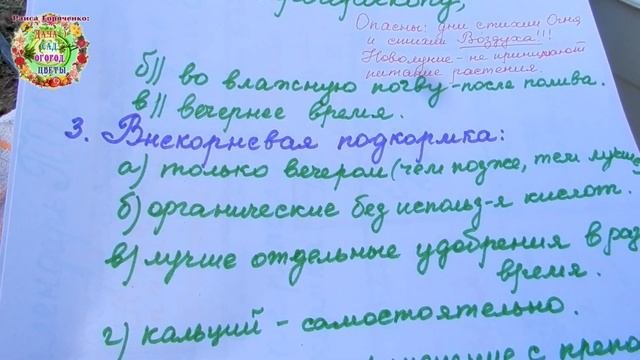 Раиса Горяченко:
ДАЧА
САД
ОГОРОД
ЦВЕТЫ
Опасны: дни стихии Огня
и стихии Воздуха!!!
Новолуние - не принимают
питание растения.
б) во влажную почву - после полива.
в) вечернее время.
3. Внекорневая подкормка:
а) только вечером (чем позже, тем лучше
б) органические без использ-я кислот.
в) лучше отдельные удобрения в раз
время.
г) кальций - самостоятельно.